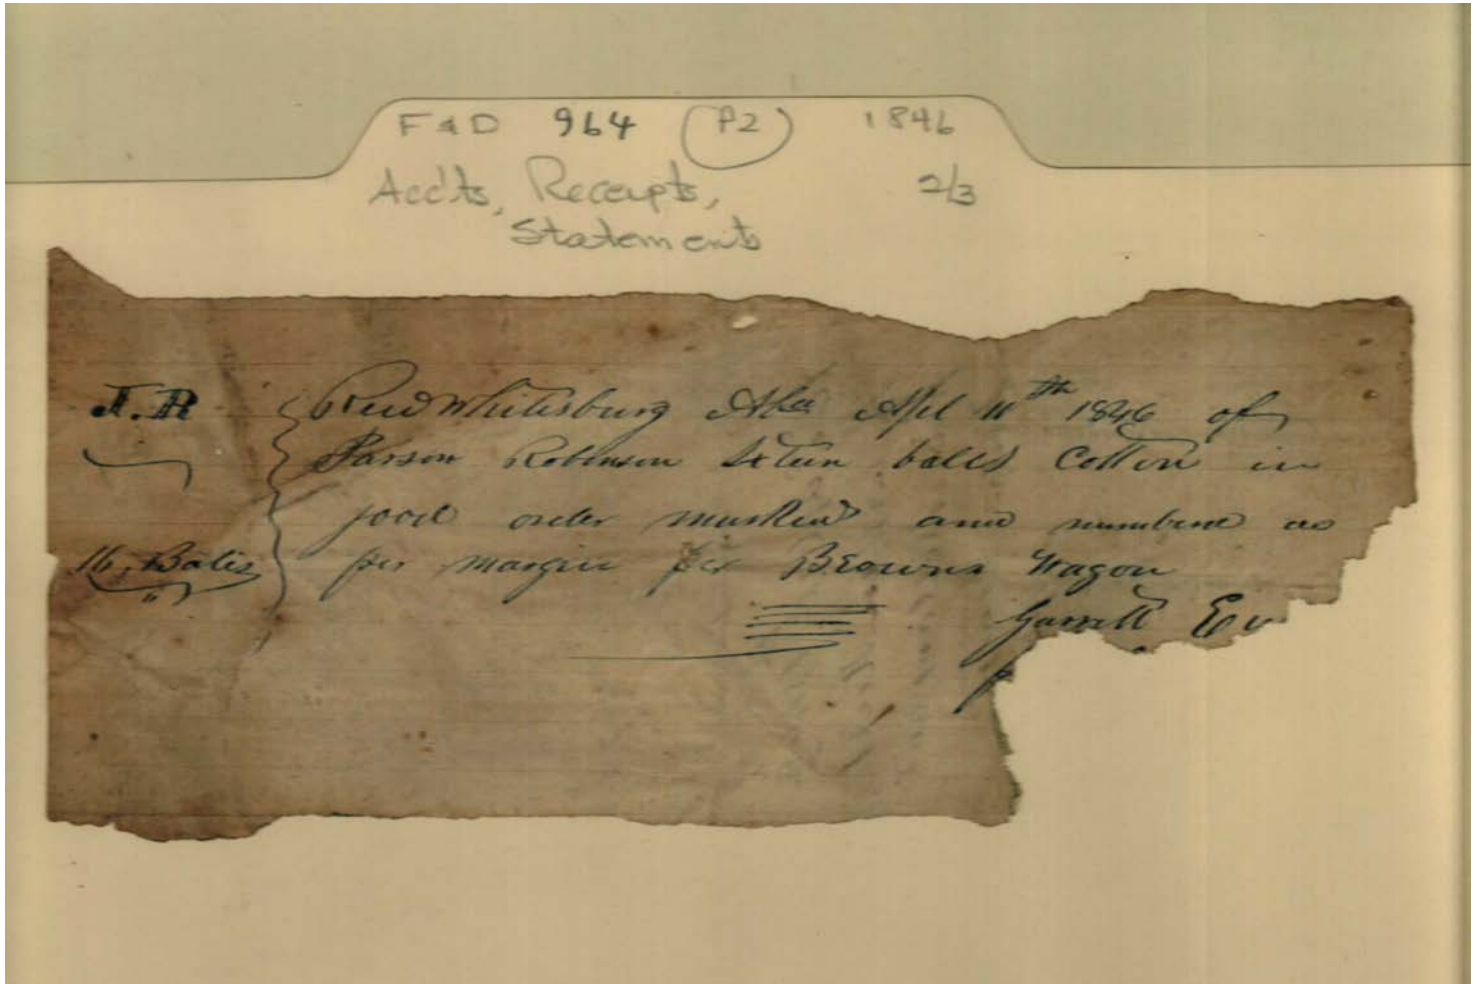 F & D 964 (P2) 1846
Acc'ts, Receipts, 2/3
Statements
J.R Recd Whitesburg Ala Apl 11th 1846 of
Parson Robinson Sixteen balls Cotton in
good order marked and numbered as
16, Bales per margin per Browns Wagon
Garrett